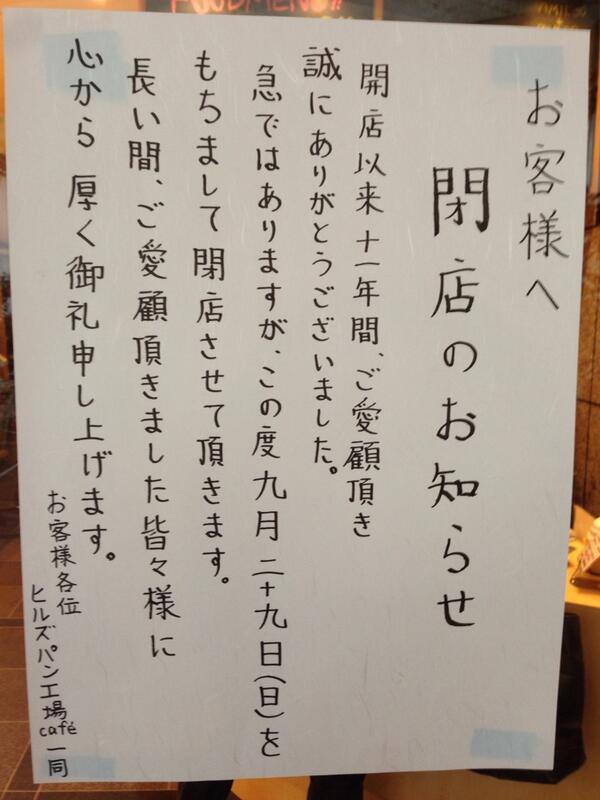 お客様へ
閉店のお知らせ
開店以来十一年間、ご愛顧頂き
誠にありがとうございました。
急ではありますが、この度九月二十九日(日)を
もちまして閉店させて頂きます。
長い間、ご愛顧頂きました皆々様に
心から厚く御礼申し上げます。
お客様各位
ヒルズパン工場café一同